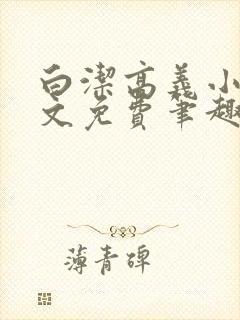 白潔高義小
文免費筆趣
薄青碑